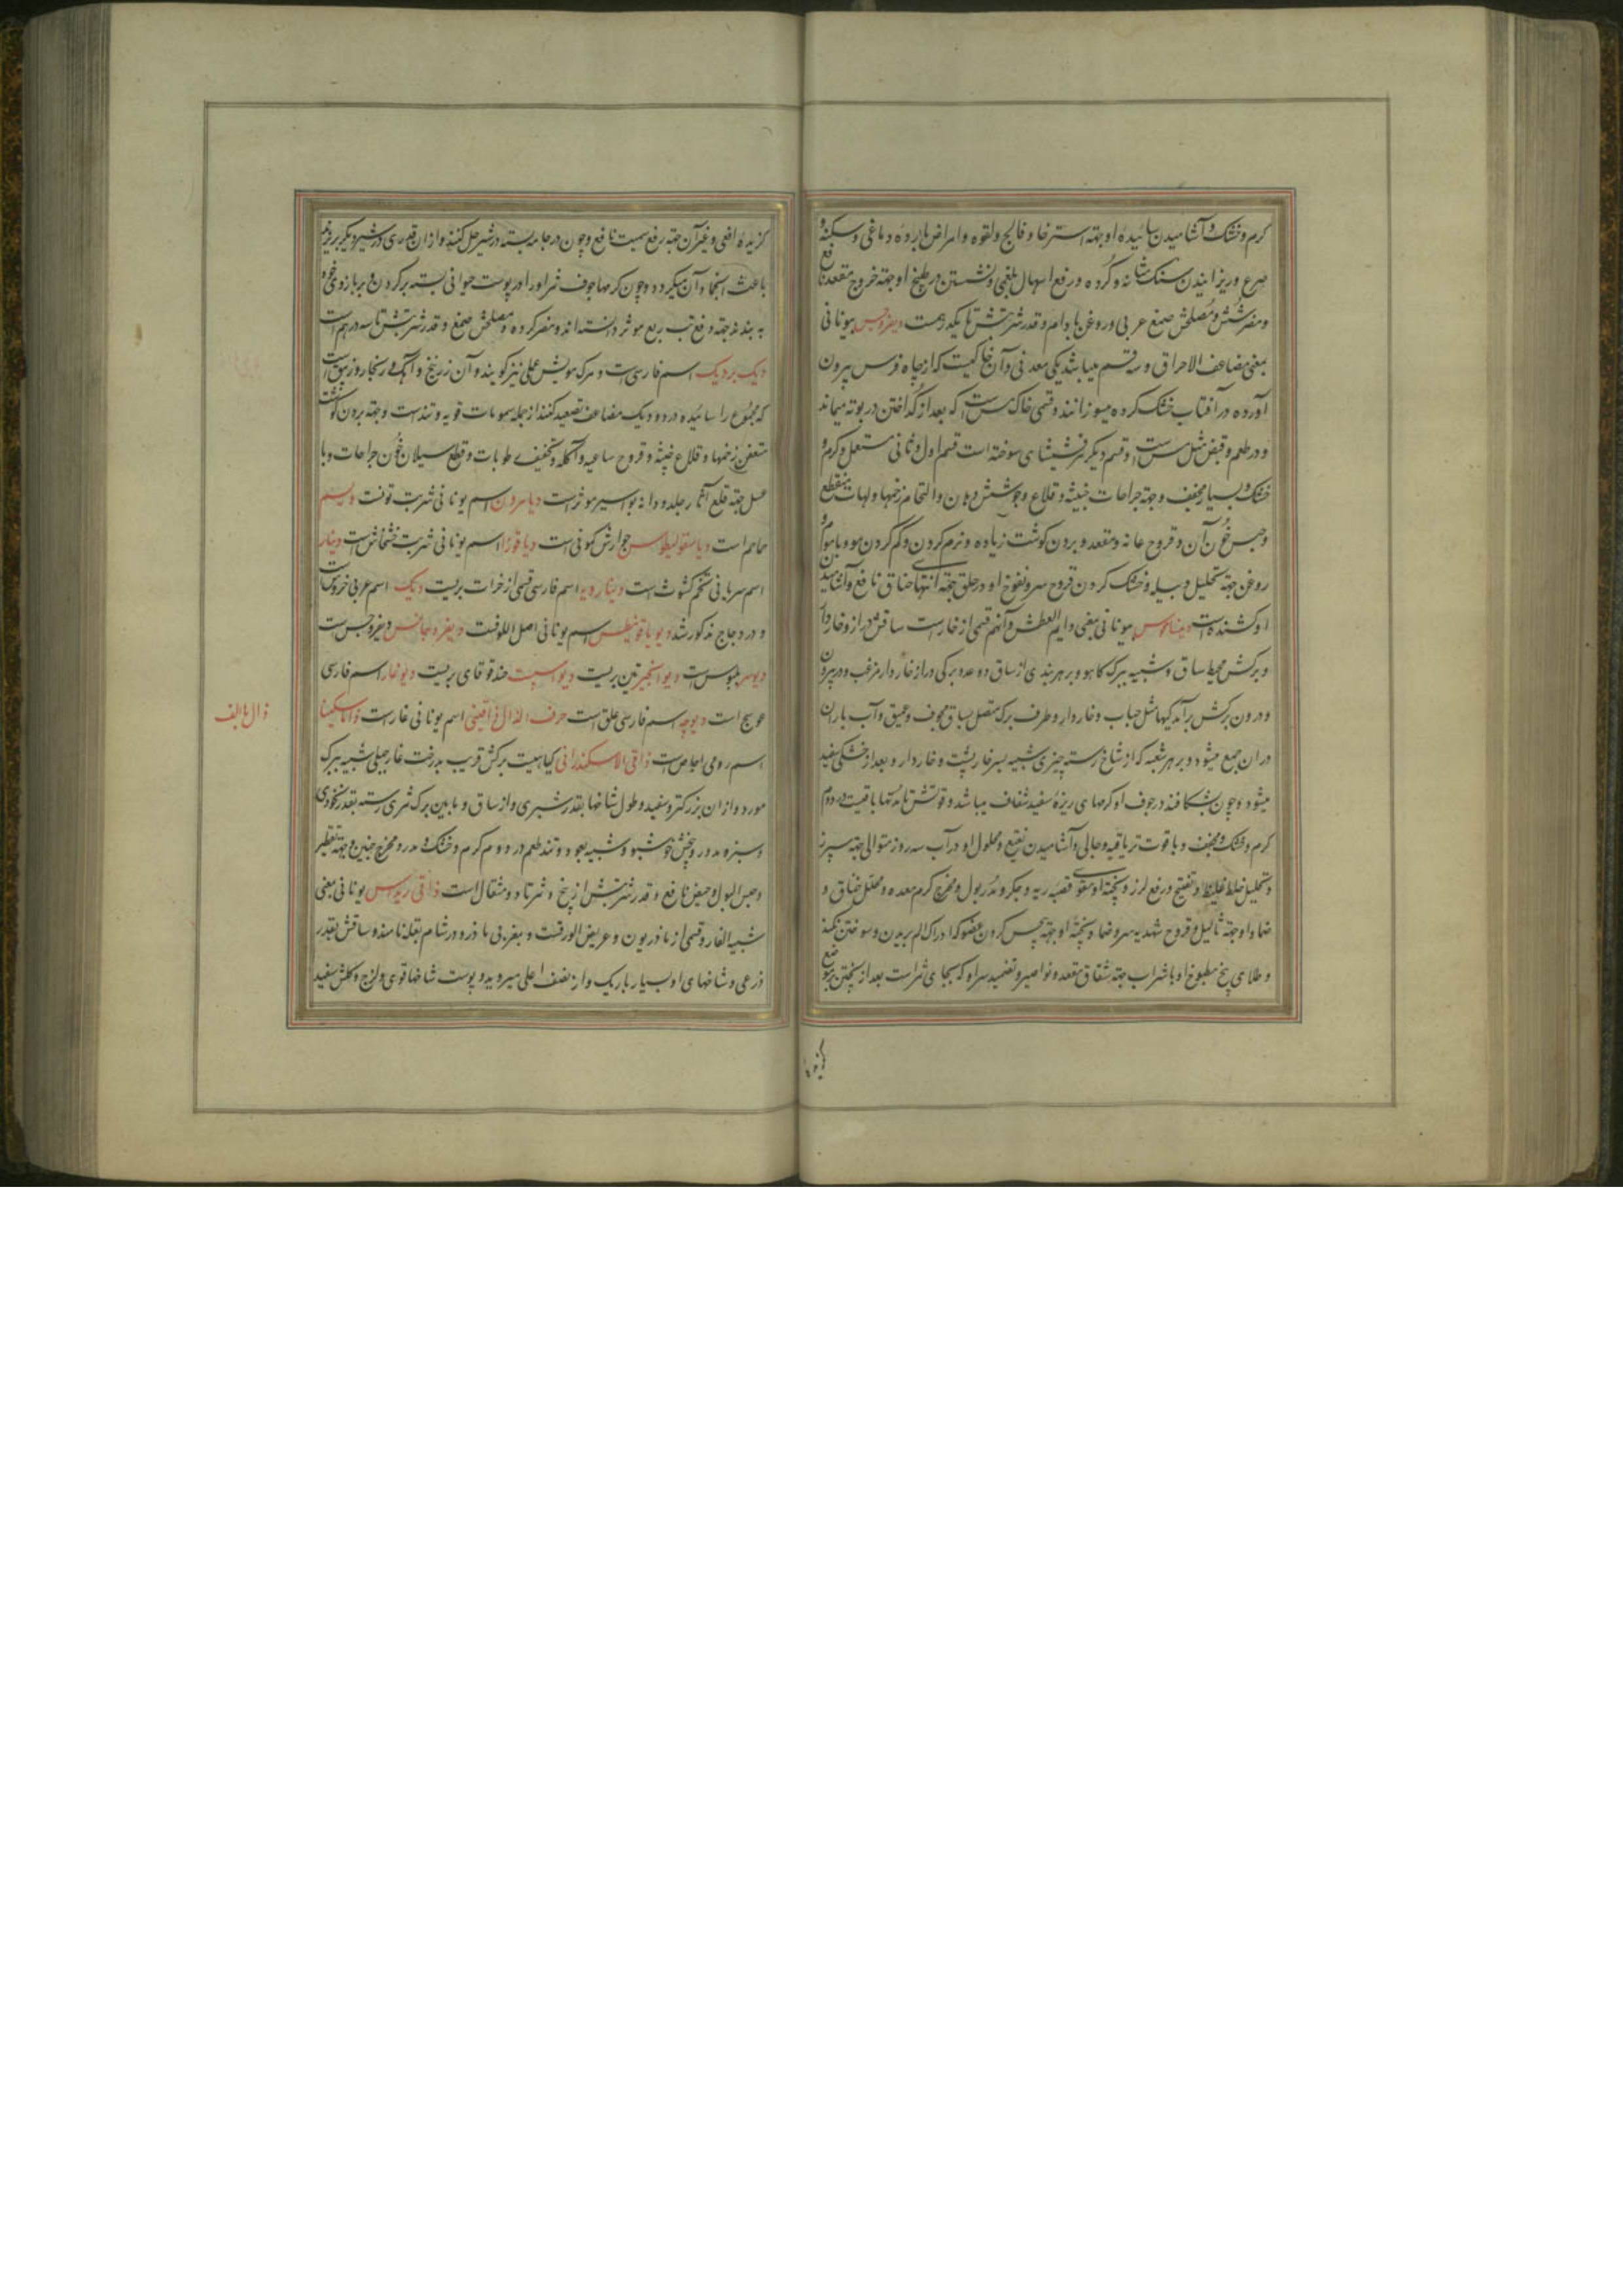 کرم و خشک و آشامیدن سائیدهٔ او جهته استرخا و فالج و لقوه و امراض باردهٔ دماغی و سکته و
صرع و ریزانیدن سنک مثانه و کرده و رفع اسهال بلغمی و نشستن در طبیخ او جهته خروج مقعد نافع
و مضر شش و مصلحش صمغ عربی و روغن بادام و قدر شربتش تا یکدرهمست دیفروجس بیونانی
بمعنی مضاعف الاحراق و سه قسم میباشد یکی معدنی و آن خاکیست که از چاه قبرس بیرون
آورده در آفتاب خشک کرده میسوزانند و قسمی خاک مس است که بعد از کداختن در بوته میماند
و در طعم و قبض مثل مس است و قسم دیکر مرقشیشای سوخته است قسم اول و ثانی مستعمل و کرم و
خشک و بسیار مجفف و جهته جراحات خبیثه و قلاع و جوشش دهان و التحام زخمها و لهات منقطع
و حبس خون آن و قروح عانه و مقعد و بردن کوشت زیاده و نرم کردن و کم کردن مو و با موم و
روغن جهته تحلیل دبیله و خشک کردن قروح سر و نفوخ او در حلق جهته انتهای خناق نافع و آشامیدن
او کشنده است دیبساقوس بیونانی بمعنی دایم العطش و آنهم قسمی از خار است ساقش دراز و خاردار
و برکش محیط ساق و شبیه ببرک کاهو و بر هر بندی از ساق دو عدد برکی دراز خاردار مزغب و در بیرون
و درون برکش برآمدکیها مثل حباب و خاردار و طرف برک متصل بساق مجوف و عمیق و آب باران
در ان جمع میشود و بر هر شعبه که از شاخ رسته چیزی شبیه بسر خارپشت و خاردار و بعد از خشکی سفید
میشود و چون بشکافند در جوف او کرمهای ریزهٔ سفید شفاف میباشد و قوتش تا مدتها باقیست در دوم
کرم و خشک و مجفف و با قوت تریاقیه و جالی و آشامیدن نقیع و محلول او در آب سه روز متوالی جهته سپرز
و تحلیل خلط غلیظ و تفتیح و رفع لرز و پختهٔ او مقوی قصبه ریه و جکر و مدر بول و مخرج کرم معده و محلل خناق و
ضماد او جهته ثالیل و قروح شهدیه سر و ضماد پختهٔ او جهته بیحس کردن عضو که ادراک الم بریدن و سوختن نکند
و طلای بیخ مطبوخ او با شراب جهته شقاق مقعد و نواصیر و تضمید سر او که بجای ثمر است بعد از پختن بر موضع
کزیدهٔ
کزیدهٔ افعی و غیر آن جهته رفع سمیت نافع و چون در جامه بسته در شیر حل کنند و از ان قدری در شیر دیکر بریزند
باعث انجماد آن میکردد و چون کرمها جوف ثمر او را در پوست حیوانی بسته بر کردن و بر بازوی خود
به بندند جهته دفع تب ربع موثر دانسته اند و مضر کرده و مصلحش صمغ و قدر شربتش تا سه درهم است
دیک بر دیک اسم فارسی است و مرک موش عملی نیز کویند و آن زرنیخ و آهک و زنجار و زیبق است
که مجموع را سائیده در دو دیک مضاعف تصعید کنند از جمله سمومات قویه و تند است و جهته بردن کوشت
متعفن زخمها و قلاع خبیثه و قروح ساعیه و آکله و تخفیف رطوبات و قطع سیلان خون جراحات و با
عسل جهته قلع آثار جلد و دانه بواسیر موثر است دیامرون اسم یونانی شربت توتست دیسم
حماحم است دیاسقولیطوس جوارش کمونی است دیاقوزا اسم یونانی شربت خشخاش است دینار
اسم سریانی تخم کشوث است دیناردیه اسم فارسی قسمی از خرات بریست دیک اسم عربی خروس است
و در دجاج مذکور شد دیوباقونیطس اسم یونانی اصل اللوفست دیفروجانس دیفروجس است
دیوس بلبوس است دیوانجیر تین بریست دیواسپست حندقوقای بریست دیوخار اسم فارسی
عوسج است دیوچه اسم فارسی علق است حرف الذال ذاقینی اسم یونانی غار است ذاماسکینا
ذال با الف
اسم رومی اجاص است ذاقی الاسکندرانی کیاهیست برکش قریب بدرخت غار جبلی شبیه ببرک
مورد و از ان بزرکتر و سفید و طول شاخها بقدر شبری و از ساق و مابین برک ثمری رسته بقدر نخودی
و سبز و مدور و بیخش خوشبو و شبیه بعود و تند طعم در دوم کرم و خشک و مدر و مخرج جنین و جهته تقطیر
و حبس البول و حیض نافع و قدر شربتش از بیخ و ثمر تا دو مثقال است ذاقی ریداس یونانی بمعنی
شبیه الغار و قسمی از ماذریون و عریض الورقست و بعربی ماذر و در شام بقله نامند و ساقش بقدر
ذرعی و شاخهای او بسیار باریک و از نصف اعلی میروید و پوست شاخها قوی و لزج و کلش سفید